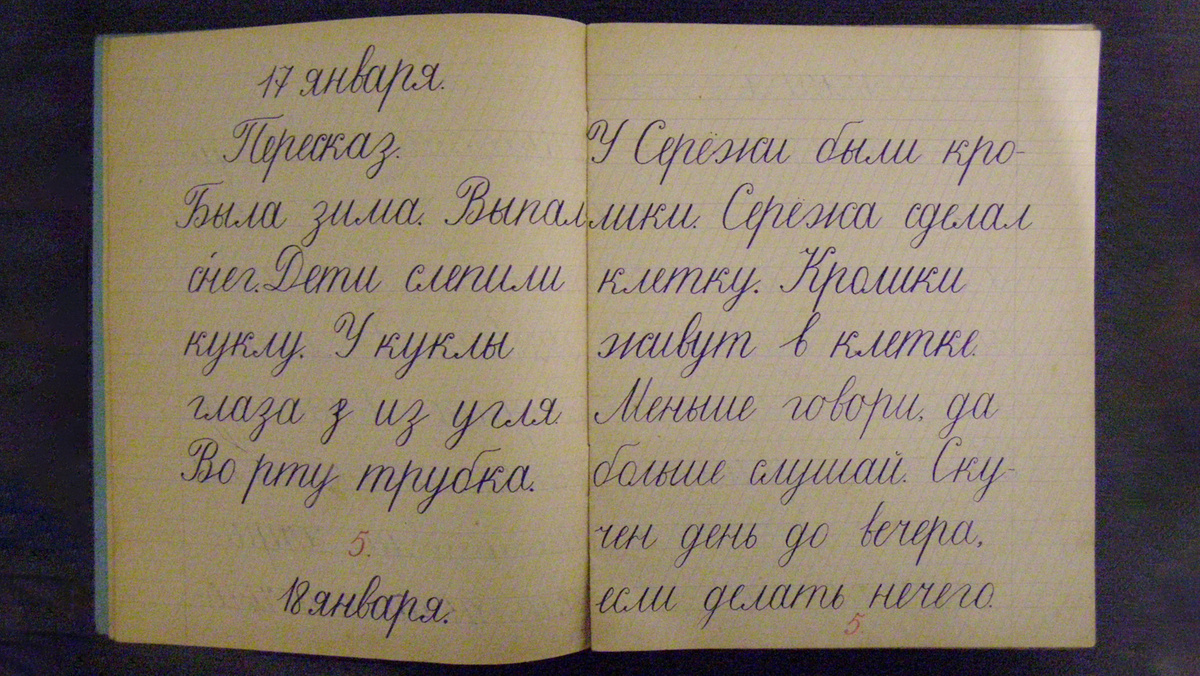 17 января.
Пересказ.
Была зима. Выпал
снег. Дети слепили
куклу. У куклы
глаза з из угля.
Во рту трубка.
5.
18 января.
У Серёжи были кро-
лики. Серёжа сделал
клетку. Кролики
живут в клетке.
Меньше говори, да
больше слушай. Ску-
чен день до вечера,
если делать нечего.
5